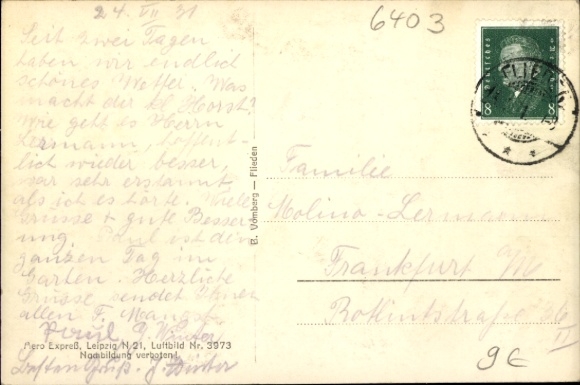 24. VII 31
Seit zwei Tagen
haben wir endlich
schönes Wetter. Was
macht der kl. Horst?
Wie geht es Herrn
Lermann, hoffent-
lich wieder besser,
war sehr erstaunt
als ich es hörte. Viele
Grüsse & gute Besser
ung. Paul ist den
ganzen Tag im
Garten. Herzliche
Grüsse sendet Ihnen
allen F. Mangst
Paul, G. Winter
Aero Expreß, Leipzig N 21, Luftbild Nr. 3973
Nachbildung verboten!
Gruß. J. Winter
B. Vomberg — Flieden
6403
Deutsches Reich
8 8
FLIEDEN
Familie
Molino-Lermann
Frankfurt a/M
Rotlintstraße 36
II
9€